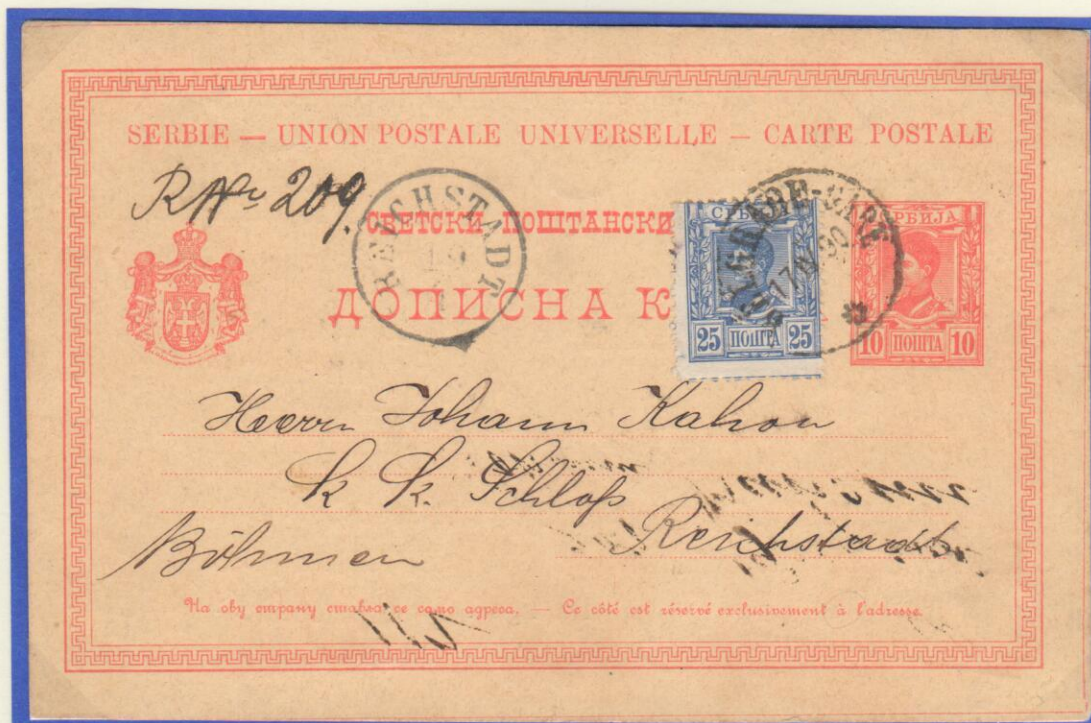 SERBIE — UNION POSTALE UNIVERSELLE — CARTE POSTALE
R Nr 209.
REICHSTADT
СВЕТСКИ ПОШТАНСКИ
ДОПИСНА К
BELGRADE-GARE
СРБИЈА
25 ПОШТА 25
СРБИЈА
10 ПОШТА 10
Herrn Johann Kahon
k. k. Schloß
Reichstadt
Böhmen
На ову страну ставља се само адреса. — Ce côté est réservé exclusivement à l'adresse.